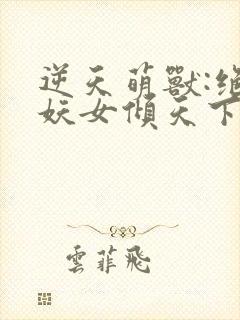 逆天萌獸:絕
妖女傾天下
雲菲飛